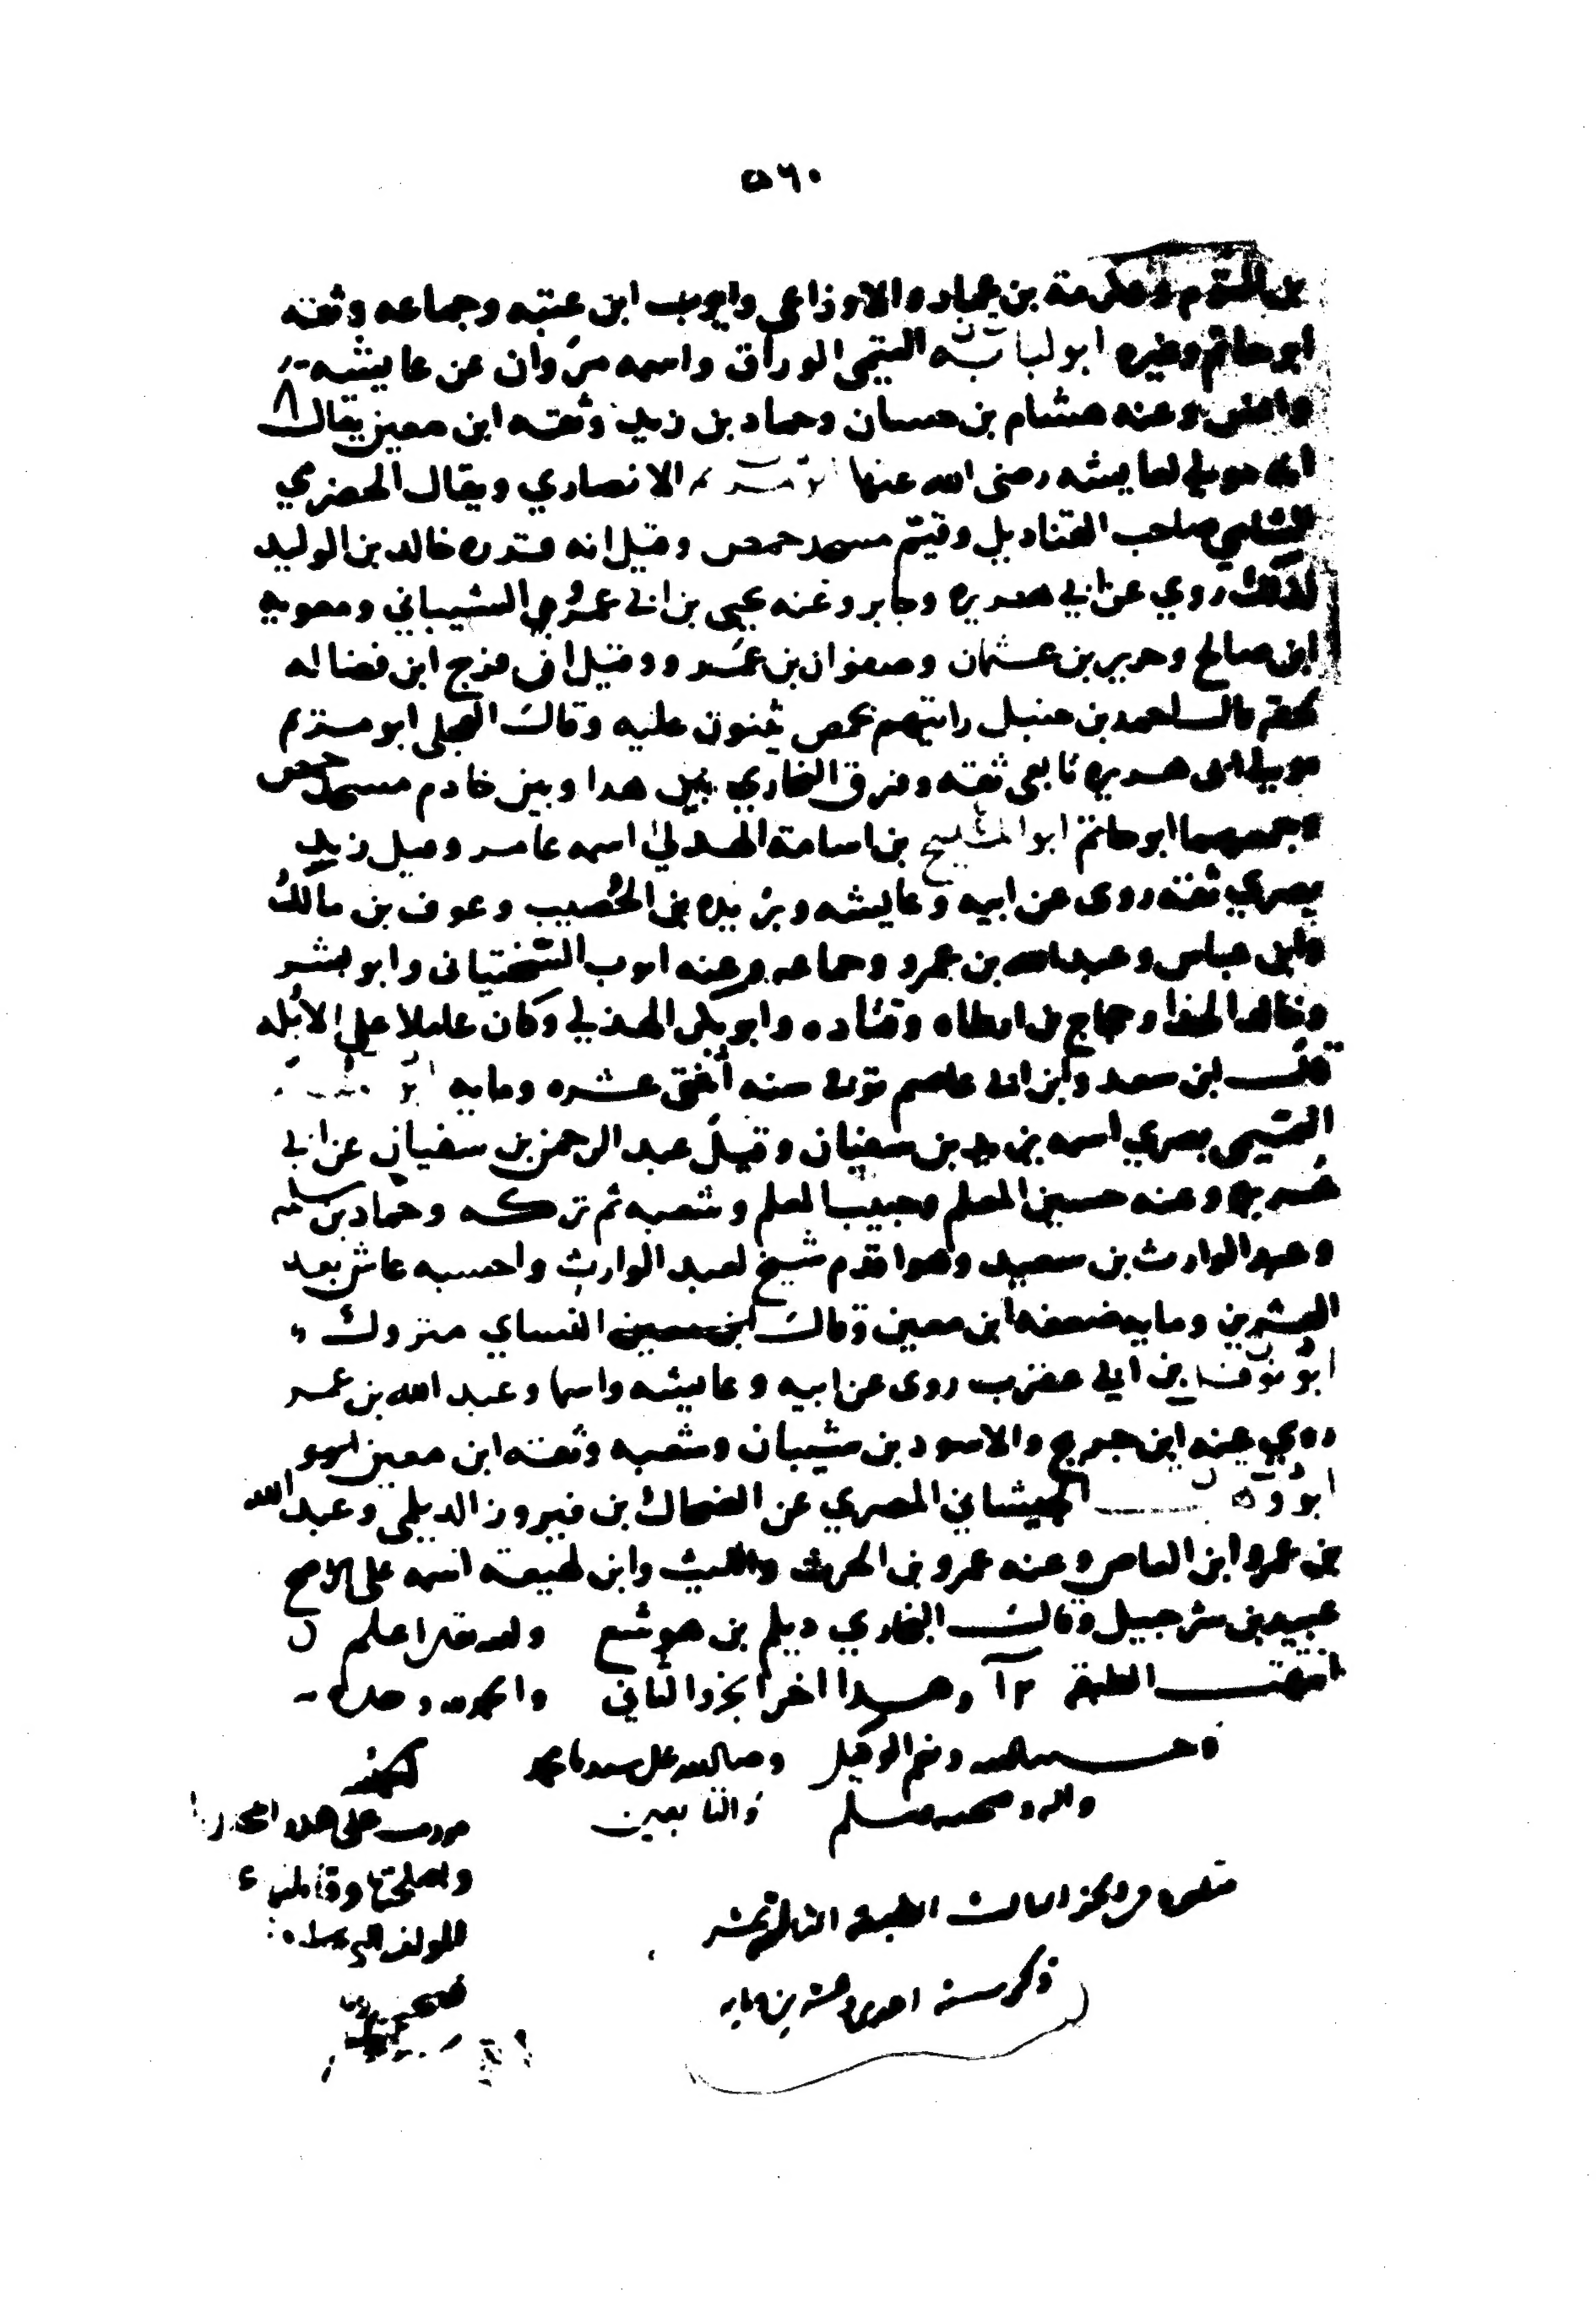 ٥٦٠
بن التوم وعكرمة بن عمار والاوزاعي وايوب ابن عتبه وجماعه وثقه
ابو حاتم وغيره ابو لبابه التيمي الوراق واسمه مروان عن عايشه
وانس وعنه هشام بن حسان وحماد بن زيد وثقه ابن معين يقال
انه مولي لعايشه رضي الله عنها الانصاري ويقال الحضرمي
الشامي صاحب القناديل وقيم مسجد حمص وقيل انه خالد بن الوليد
لذلك روي عن ابي هريره وجابر وعنه يحيى بن ابي عمرو السيباني ومعويه
ابن صالح وحريز بن عثمان وصفوان بن عمرو وقيل ان فرج ابن فضاله
لحقه قال احمد بن حنبل رايتهم بحمص يثنون عليه وقال العجلي ابو مريم
مولى ابى هريره تابعي ثقه وفرق البخاري بين هدا وبين خادم مسجد حمص
وجمعهما ابو حاتم ابو المليح بن اسامة الهدلي اسمه عامر وقيل زيد
بصري ثقه روى عن ابيه وعايشه وبريده بن الحُصيب وعوف بن مالك
وابن عباس وعبد الله بن عمرو وجماعه وعنه ايوب السختياني وابو بشر
وخالد الحذا وحجاج بن ارطاه وقتاده وابو بكر الهذلي وكان عاملا على الابله
قال ابن سعد وابن ابي عاصم توفي سنه اثنتي عشره ومايه
التميمي بصري اسمه يزيد بن سفيان وقيل عبد الرحمن بن سفيان عن ابي
هريره وعنه حسين المعلم وحبيب المعلم وشعبه ثم تركه وحماد بن سلمه
وعبد الوارث بن سعيد وهو اقدم شيخ لعبد الوارث واحسبه عاش بعد
العشرين ومايه ضعفه ابن معين وقال ابن معين النساي متروك
ابو نوفل بن ابي عقرب روى عن ابيه وعايشه واسما وعبد الله بن عمر
روي عنه ابن جريج والاسود بن شيبان وشعبه وثقه ابن معين
ابو وهب الجيشاني المصري عن الضحاك بن فيروز الديلمي وعبد الله
بن عمرو ابن العاص وعنه عمرو بن الحرث والليث وابن لهيعه اسمه على الاصح
عبيد بن شرحبيل وقال البخاري ديلم بن هوشع والله تعالى اعلم
انتهت الطبقه ١٢ وهدا اخر الجزو الثاني والحمد لله وحده
وحسبنا الله ونعم الوكيل وصلى الله على سيدنا محمد
واله وصحبه وسلم والتابعين
على هدا
واصلحتها وقابلتها
للمولف
يتلوه في الجزو الثالث الطبقه الثالثه عشر
ذكر سنه احدى وعشرين ومايه